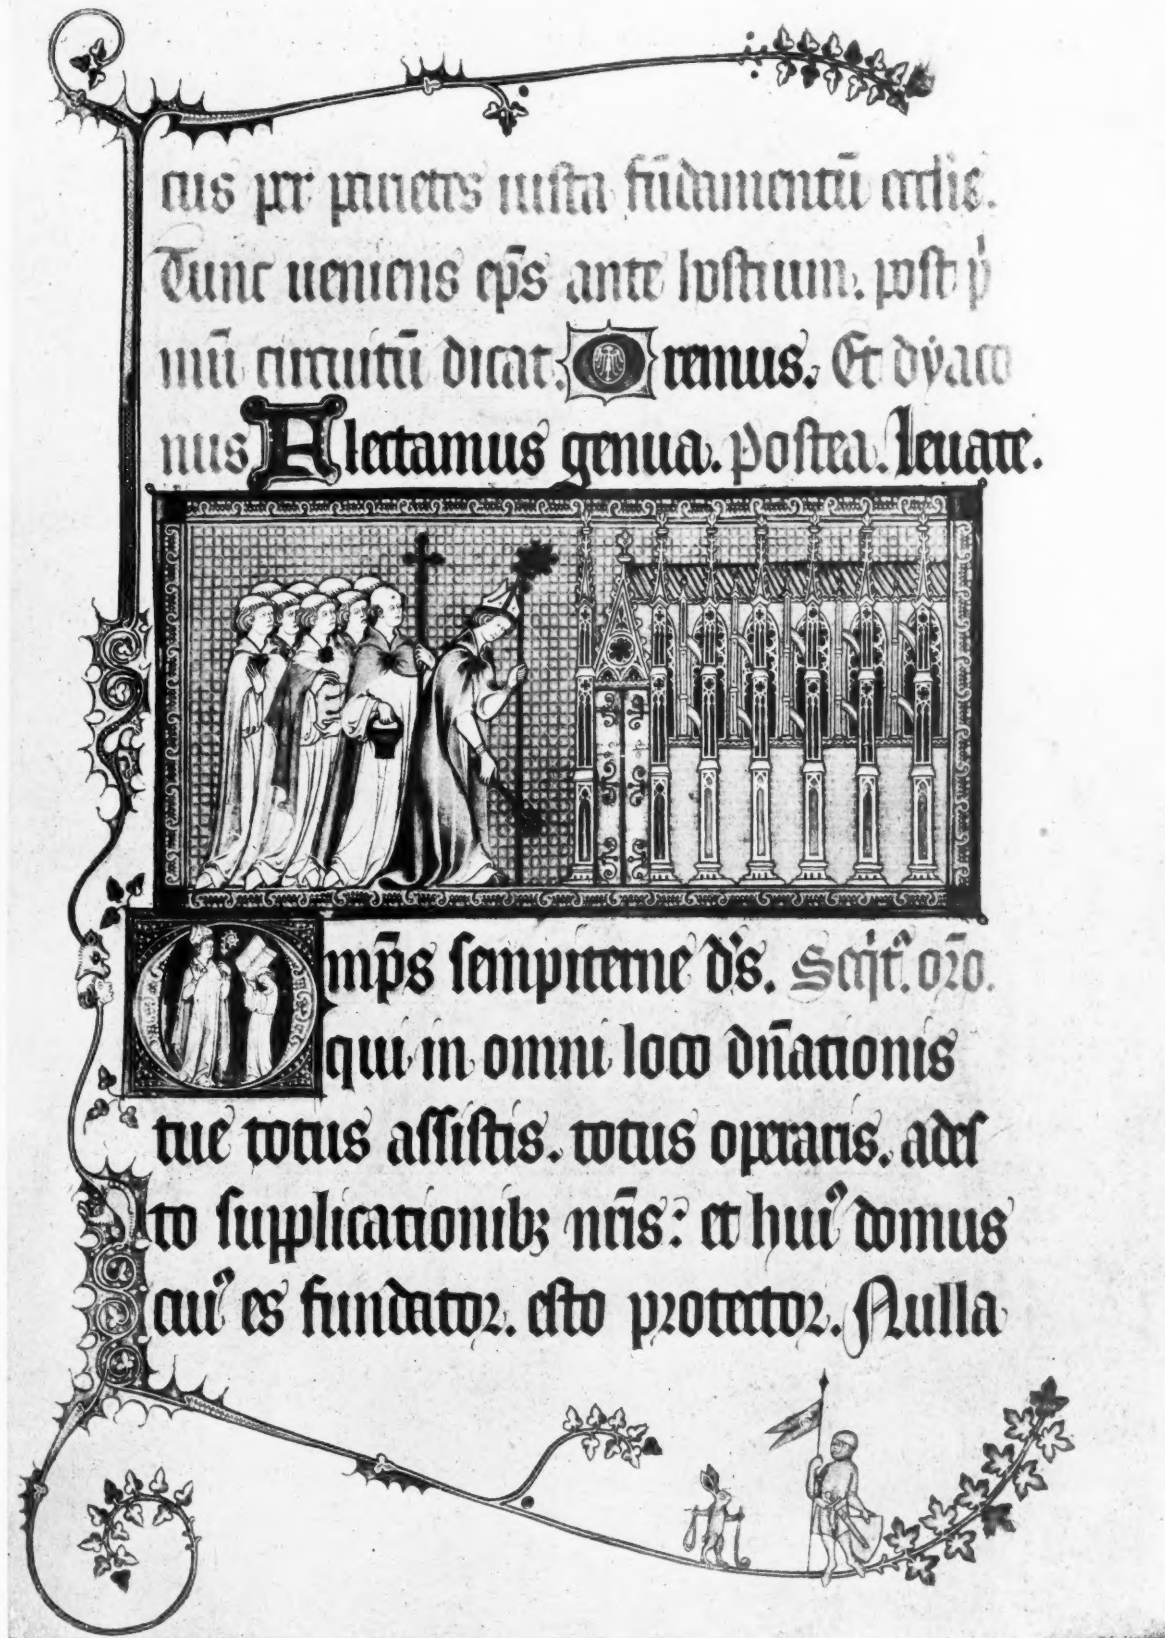 cus per parietes iusta fūdamentū eccl̄ie.
Tunc ueniens ep̄s ante hostium. post p̍
mū circuitū dicat. Oremus. Et dẏaco
nus Flectamus genua. Postea. Leuate.
Omp̄s sempiterne d̄s. Seq̍t᷒. or̄o.
qui in omni loco dn̄ationis
tue totus assistis. totus operaris. ades
to supplicationibꝫ nr̄is: et huiꝰ domus
cuiꝰ es fundator. esto protector. Nulla